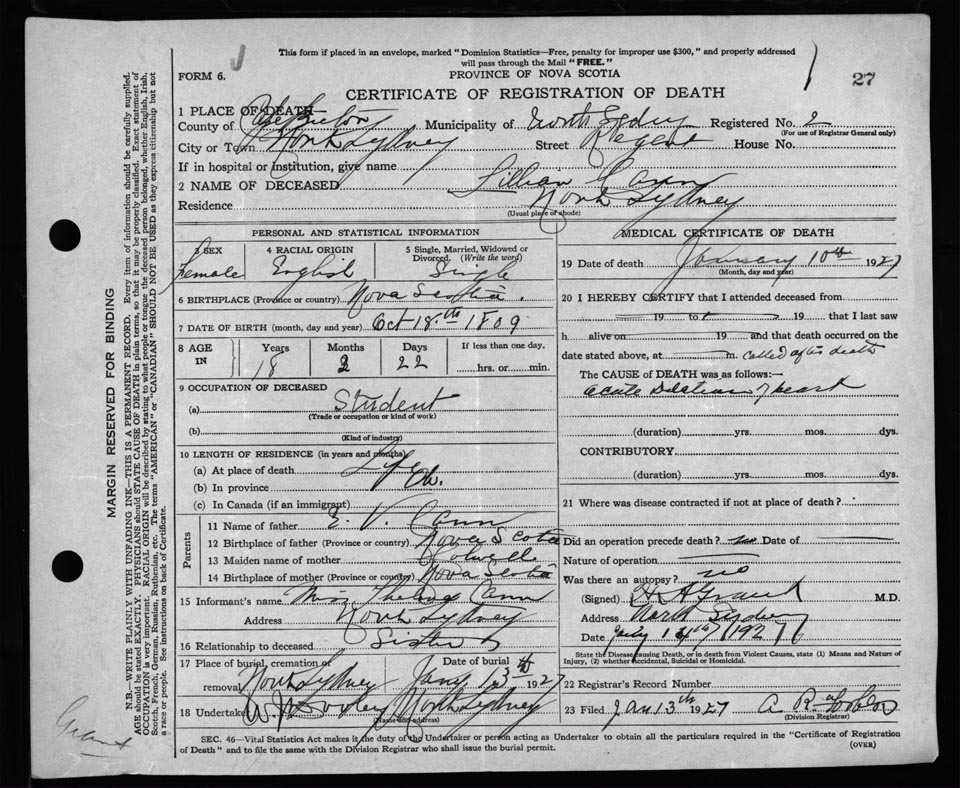 This form if placed in an envelope, marked "Dominion Statistics—Free, penalty for improper use $300," and properly addressed
will pass through the Mail "FREE."
FORM 6.
PROVINCE OF NOVA SCOTIA
27
CERTIFICATE OF REGISTRATION OF DEATH
1 PLACE OF DEATH
County of Cape Breton Municipality of North Sydney Registered No. 2
(For use of Registrar General only)
City or Town North Sydney Street Regent House No.
If in hospital or institution, give name
2 NAME OF DECEASED Lillian Cann
Residence North Sydney
(Usual place of abode)
PERSONAL AND STATISTICAL INFORMATION
3 SEX 4 RACIAL ORIGIN 5 Single, Married, Widowed or
Divorced. (Write the word)
Female English Single
6 BIRTHPLACE (Province or country) Nova Scotia.
7 DATE OF BIRTH (month, day and year) Oct 18.th 1809
8 AGE IN Years Months Days If less than one day,
18 2 22 hrs. or min.
9 OCCUPATION OF DECEASED
(a) Student
(Trade or occupation or kind of work)
(b)
(Kind of industry)
10 LENGTH OF RESIDENCE (in years and months)
(a) At place of death Life
(b) In province
(c) In Canada (if an immigrant)
Parents
11 Name of father E. V. Cann
12 Birthplace of father (Province or country) Nova Scotia
13 Maiden name of mother
14 Birthplace of mother (Province or country) Nova Scotia
15 Informant's name Miss Thelma Cann
Address North Sydney
16 Relationship to deceased Sister
17 Place of burial, cremation or Date of burial
removal North Sydney Jany 13th 1927
18 Undertaker North Sydney
(Name and address)
MEDICAL CERTIFICATE OF DEATH
19 Date of death January 10th 1927
(Month, day and year)
20 I HEREBY CERTIFY that I attended deceased from
19 to 19 that I last saw
h alive on 19 and that death occurred on the
date stated above, at m. Called after death
The CAUSE of DEATH was as follows:—
Acute Dilation of heart
(duration) yrs. mos. dys.
CONTRIBUTORY
(duration) yrs. mos. dys.
21 Where was disease contracted if not at place of death?
Did an operation precede death? no Date of
Nature of operation
Was there an autopsy? no
(Signed) M.D.
Address North Sydney
Date
State the Disease causing Death, or in death from Violent Causes, state (1) Means and Nature of
Injury, (2) whether Accidental, Suicidal or Homicidal.
22 Registrar's Record Number
23 Filed Jan 13th 1927
(Division Registrar)
SEC. 46—Vital Statistics Act makes it the duty of the Undertaker or person acting as Undertaker to obtain all the particulars required in the "Certificate of Registration
of Death" and to file the same with the Division Registrar who shall issue the burial permit.
(OVER)
MARGIN RESERVED FOR BINDING
N.B.—WRITE PLAINLY WITH UNFADING INK—THIS IS A PERMANENT RECORD. Every item of information should be carefully supplied.
AGE should be stated EXACTLY. PHYSICIANS should STATE CAUSE OF DEATH in plain terms, so that it may be properly classified. Exact statement of
OCCUPATION is very important. RACIAL ORIGIN will be described by stating to what people or tongue the deceased person belonged, whether English, Irish,
Scotch, French, German, Russian, Ruthenian, etc. The terms "AMERICAN" or "CANADIAN" SHOULD NOT BE USED as they express citizenship but not
a race or people. See instructions on back of Certificate.